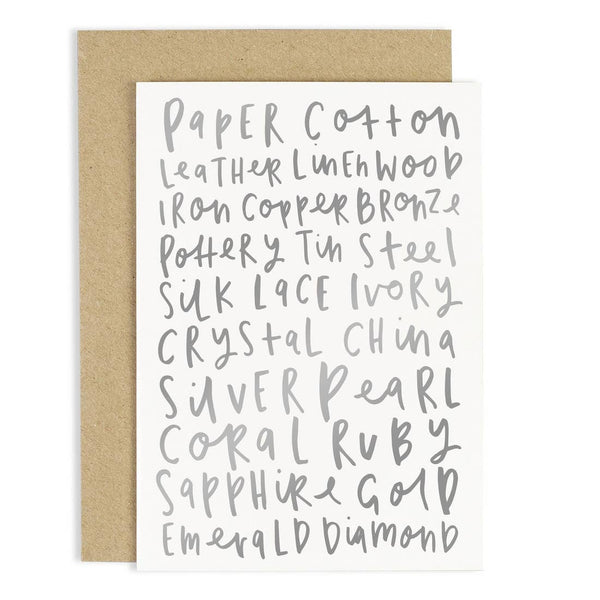 PAPER COTTON
LEATHER LINEN WOOD
IRON COPPER BRONZE
POTTERY TIN STEEL
SILK LACE IVORY
CRYSTAL CHINA
SILVER PEARL
CORAL RUBY
SAPPHIRE GOLD
EMERALD DIAMOND